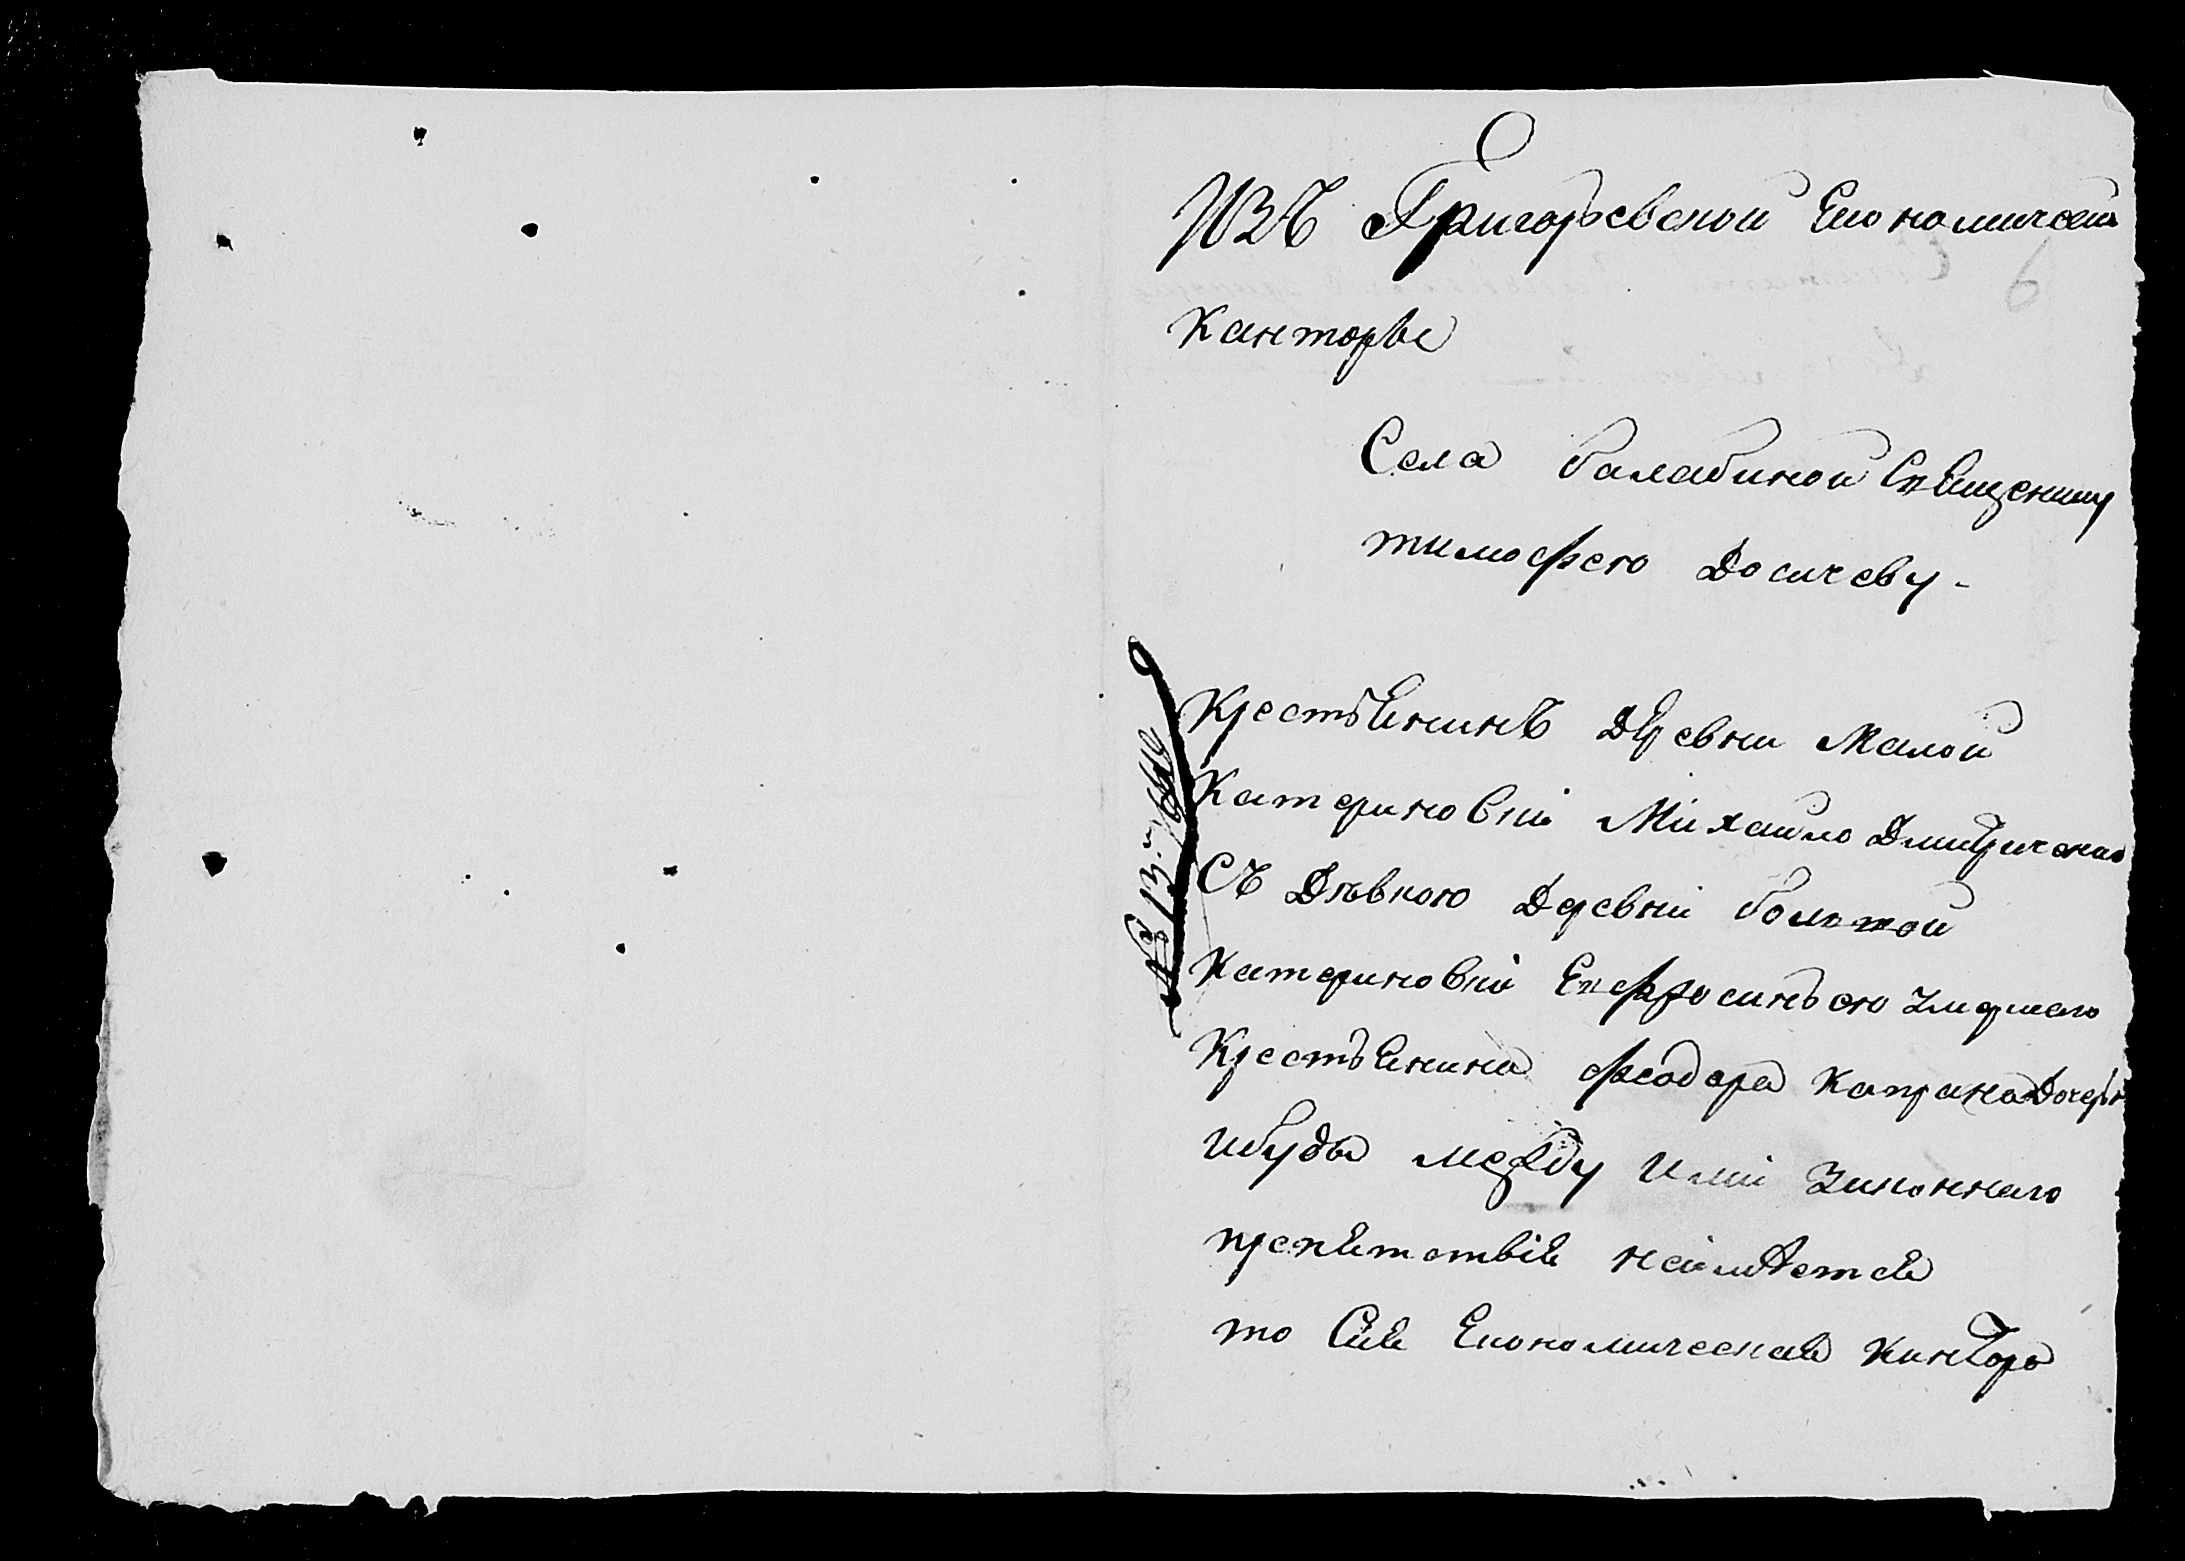 ИЗЪ Григорьевской Економической
Канторы
Села балабиной Священику
тимофею Досичеву -
Крестьянинъ Деревни Малой
Катериновки Михаило Дмитриченко
Съ Дѣвкою Деревни большой
Катериновки Евфросиньею умершаго
Крестьянина Феодора Капрана Дочерью
ибуде между ими Законнаго
препятствія неимѣется
то Сія Економическая Кантора